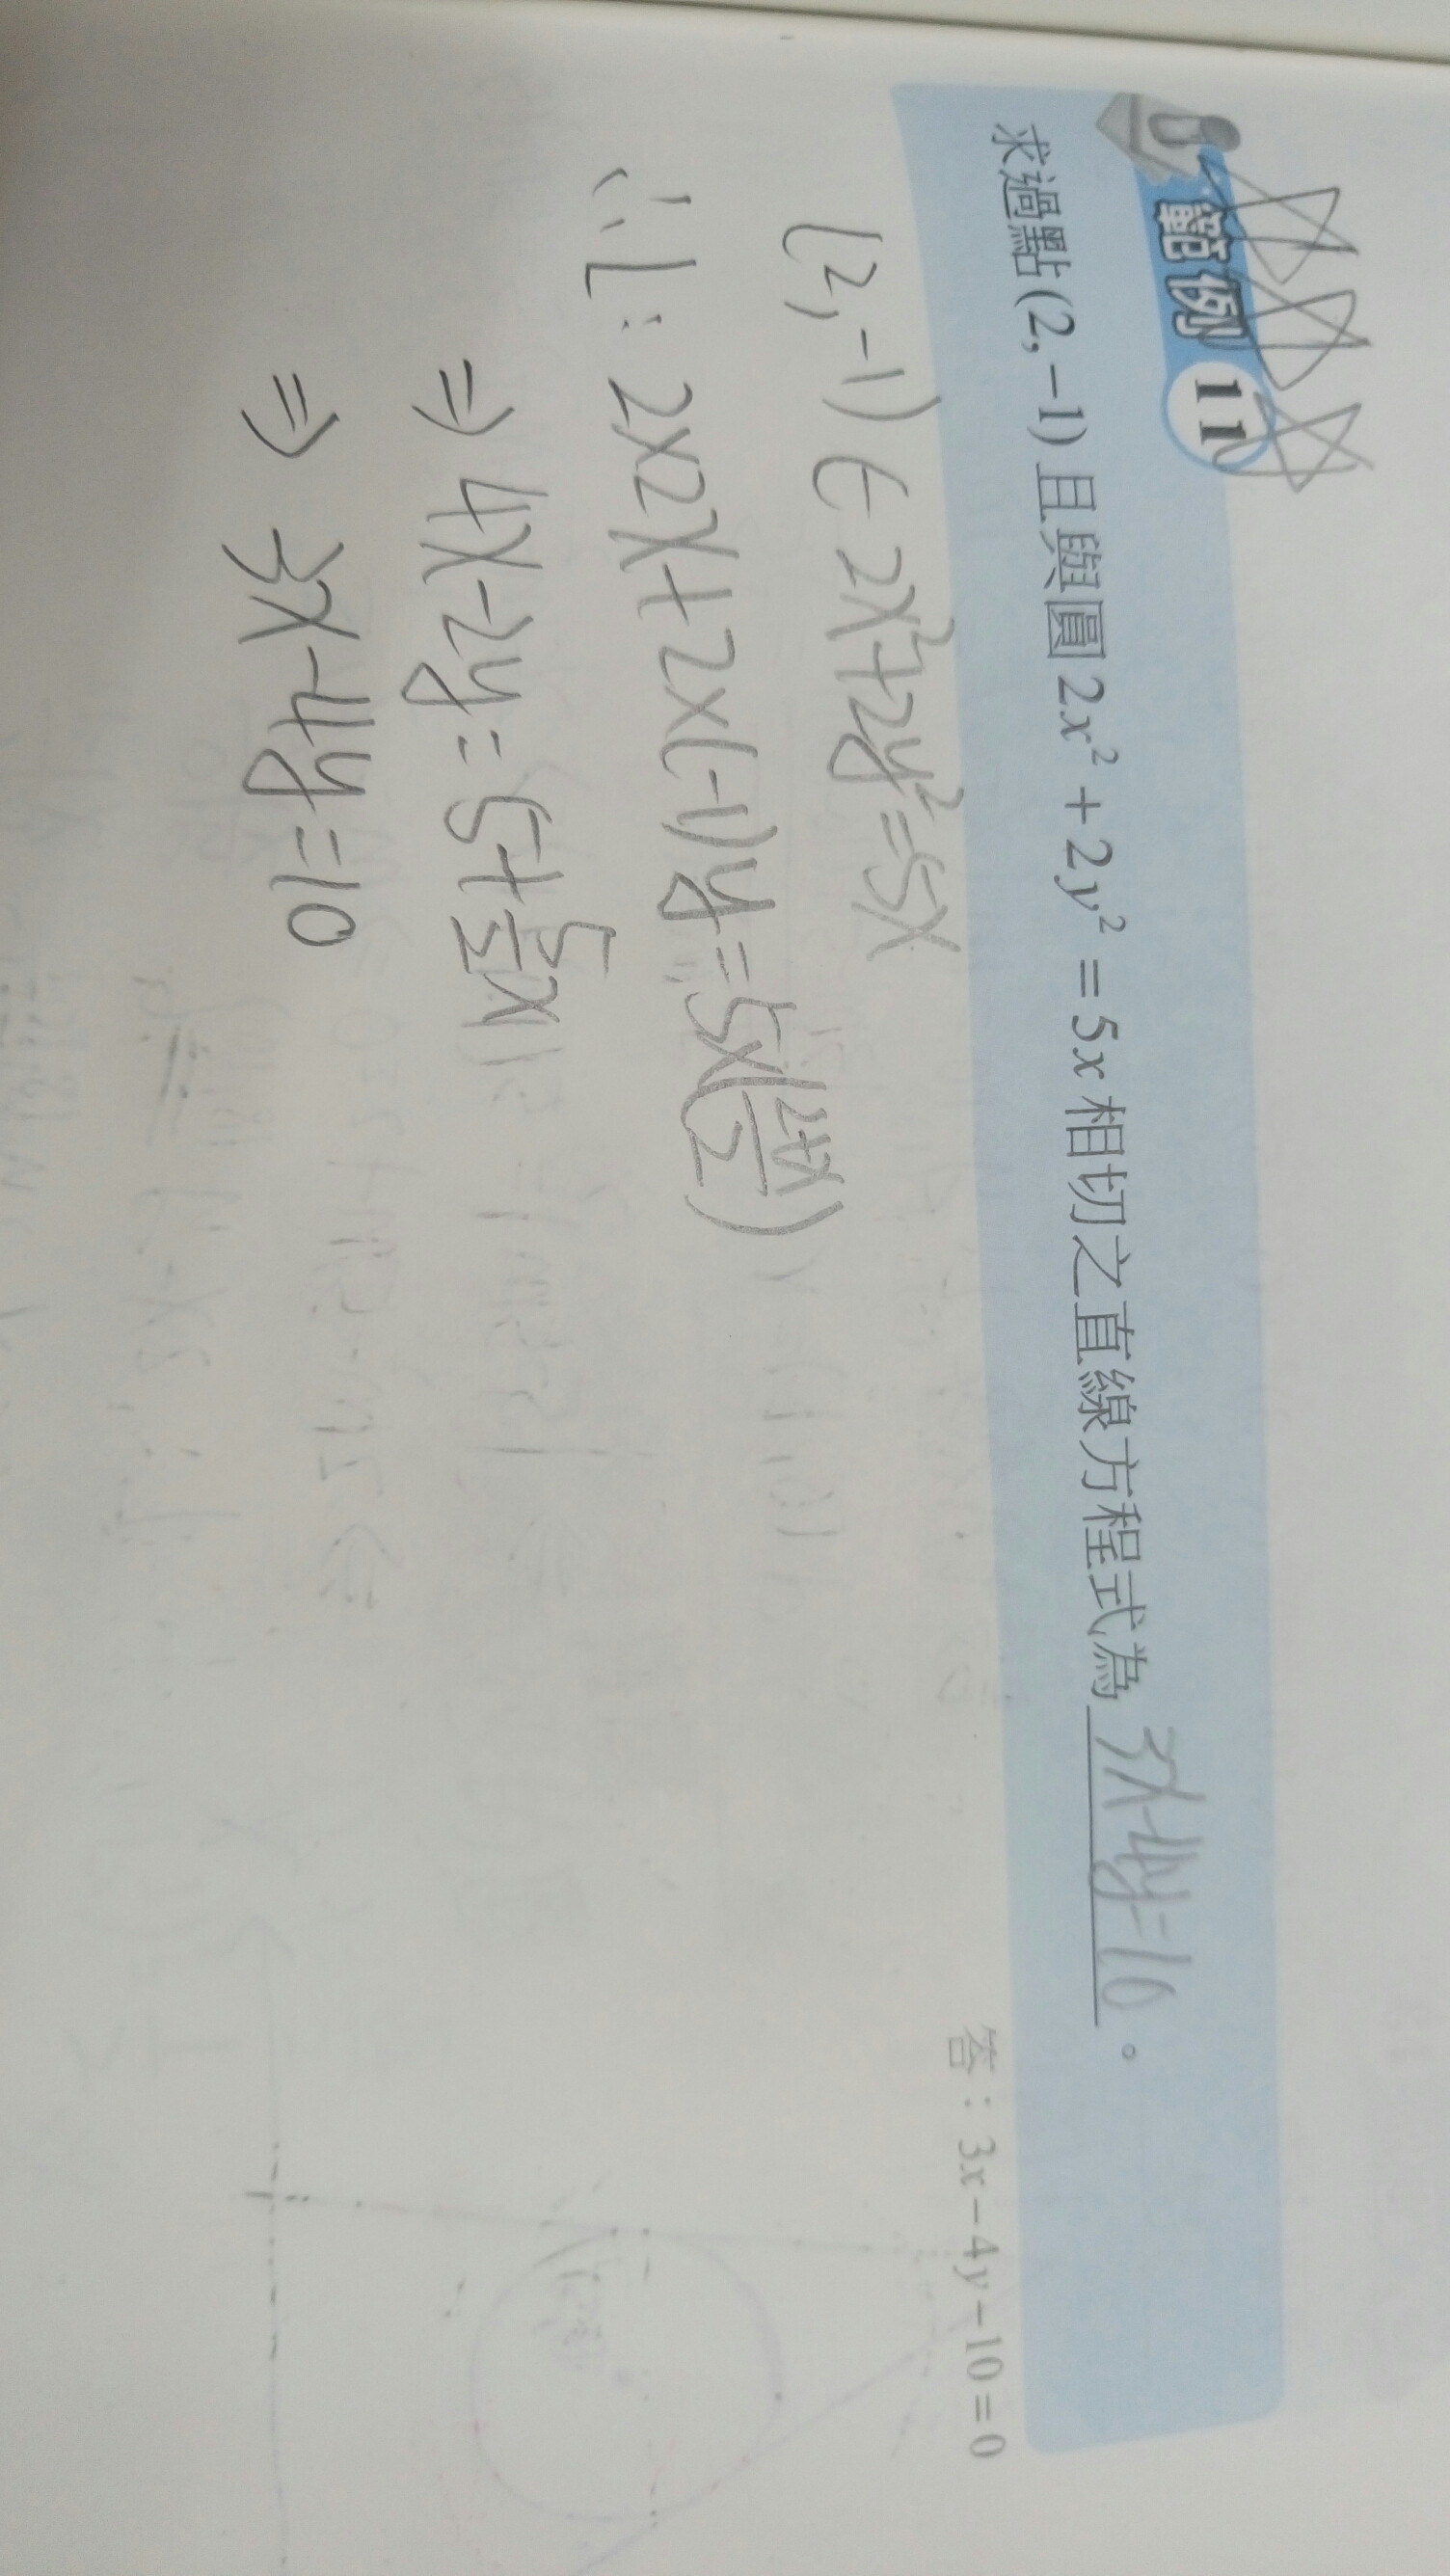 範例 11
求過點(2,−1)且與圓2x²+2y²=5x相切之直線方程式為 3x-4y=10 。
答：3x−4y−10=0
(2,-1) ∈ 2x²+2y²=5x
∴ L: 2×2x+2×(-1)y=5×(\frac{2+x}{2})
⇒ 4x-2y=5+\frac{5}{2}x
⇒ 3x-4y=10